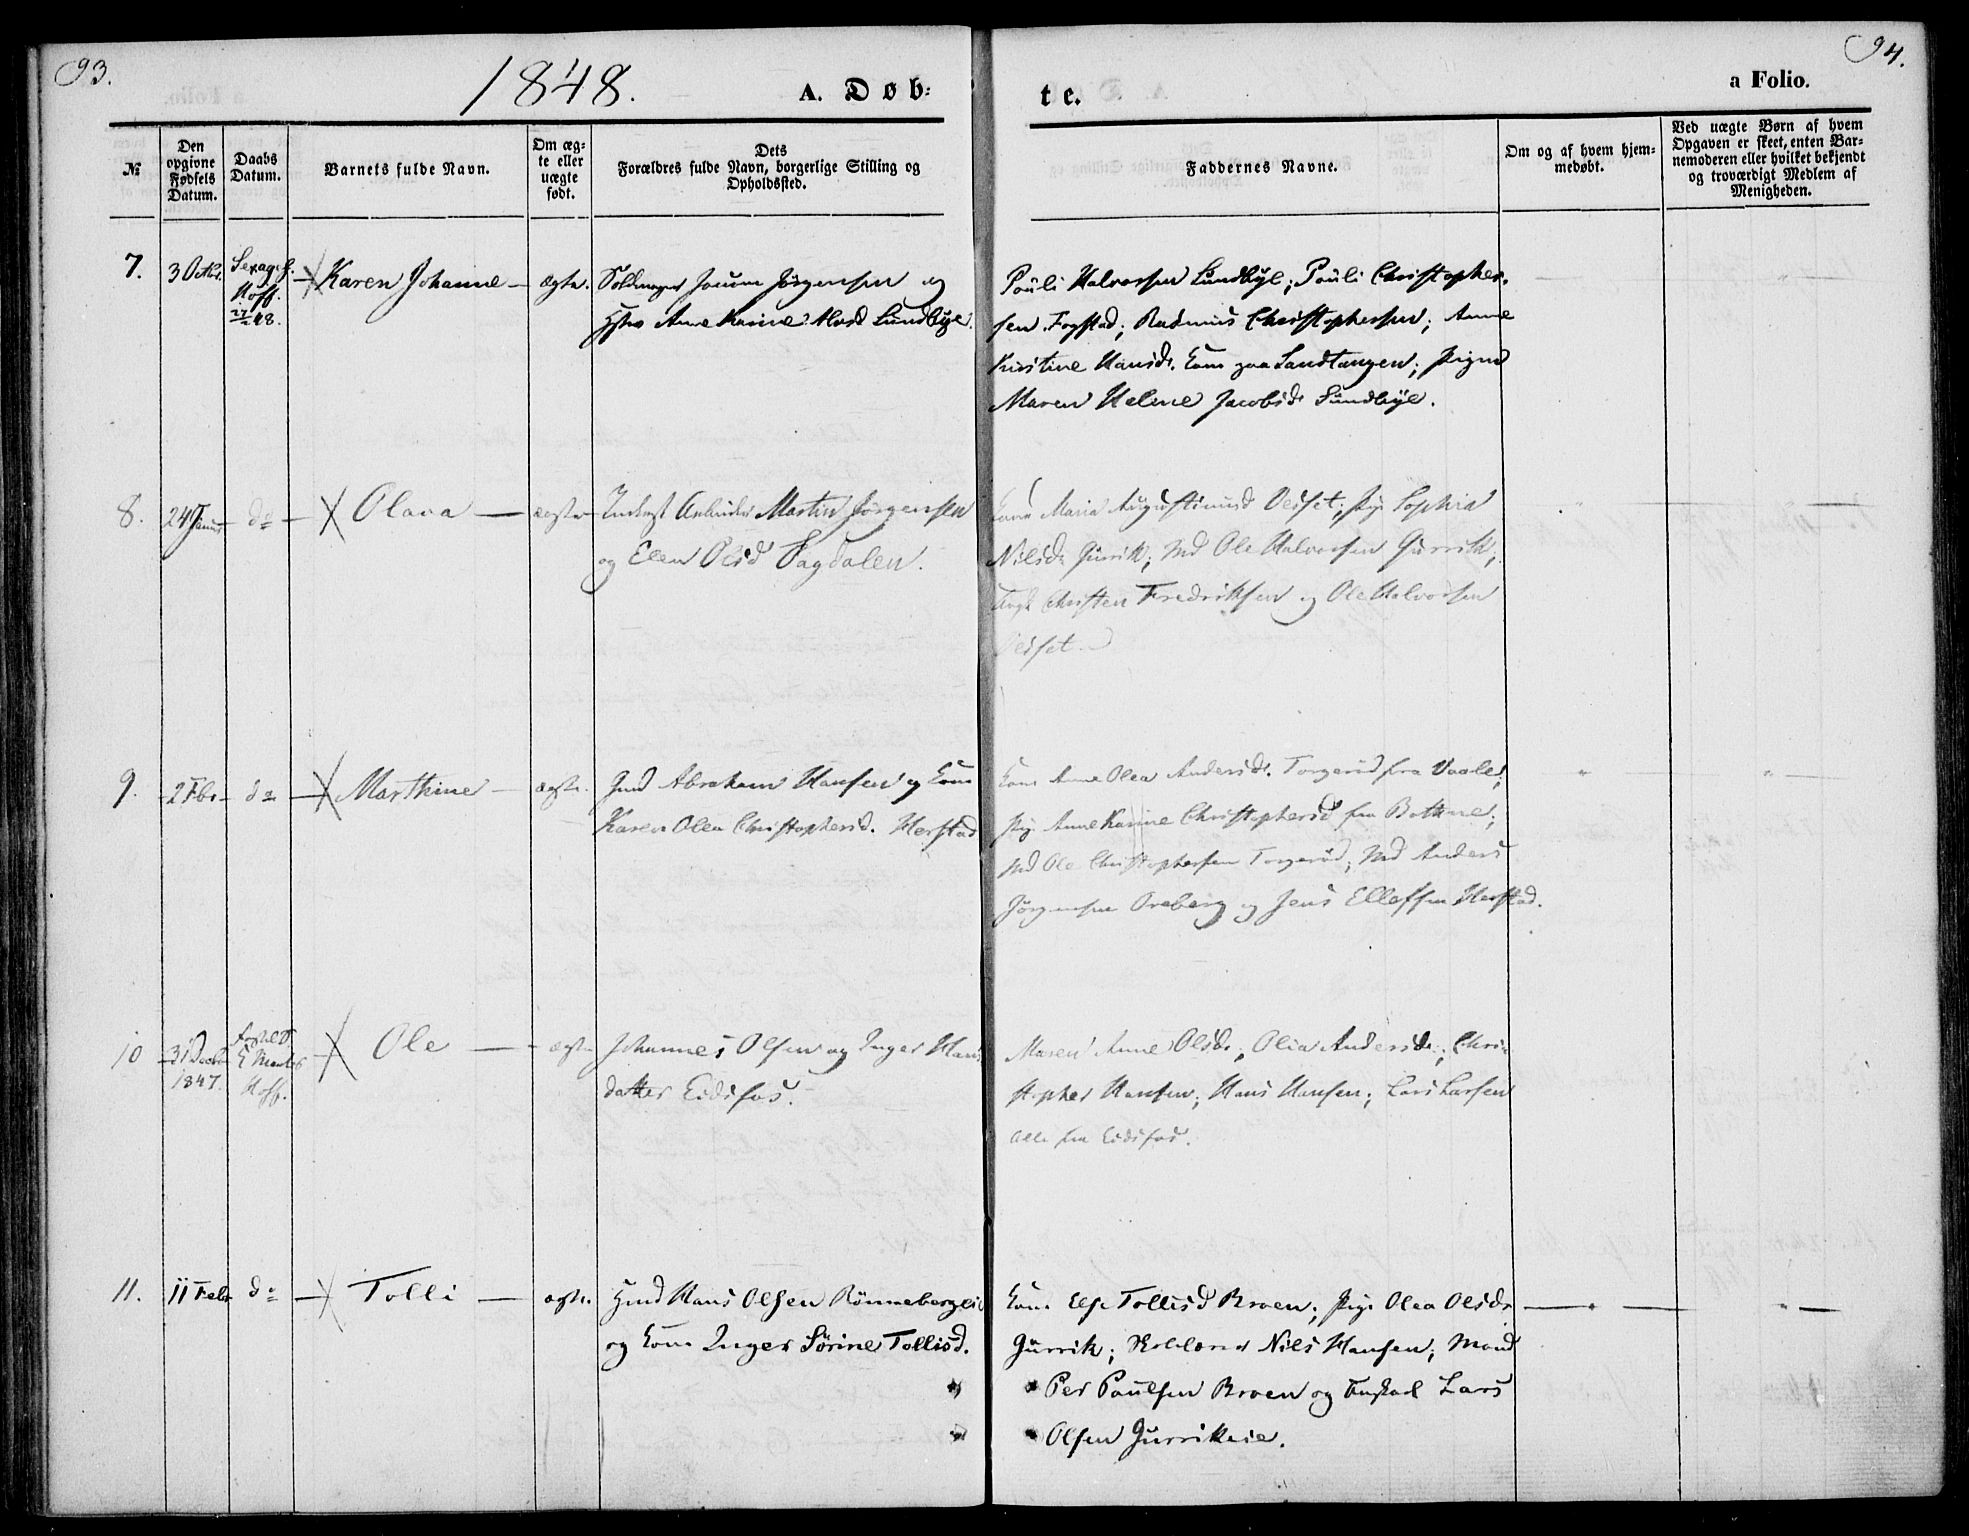 93.
1848.
A. Døb:
te.
a Folio.
94.
№
Den opgivne Fødsels Datum.
Daabs Datum.
Barnets fulde Navn.
Om æg-
te eller
uægte
født.
Dets
Forældres fulde Navn, borgerlige Stilling og
Opholdssted.
Faddernes Navne.
Om og af hvem hjem-
medøbt.
Ved uægte Børn af hvem
Opgaven er skeet, enten Bar-
nemoderen eller hvilket bekjendt
og troværdigt Medlem af
Menigheden.
7.
3 Octbr.
Sexages.
Hoff.
27/2 48.
Karen Johanne
ægte.
Jørgensen og
Hstro Anne Karine Lundbye.
Pouli Halvorsen Lundbye; Pouli Christopher-
sen Fogstad; Rasmus Christophersen; Anne
Kirstine Hansd. Sandtangen; Pigen
Maren Helene Jacobsd. Sundbye.
8.
24 Januar
do
Olava
ægte
Inderst Arbeider Martin Jørgensen
og Elen Olsd Sagdalen.
Kone Maria Augustinusd Oedset; Pig: Sophia
Nilsd. Gurrik; Md Ole Halvorsen Gurrik;
Christen Fredriksen og Ole Halvorsen
Oedset
9.
2 Fbr
do
Marthine
ægte.
Gmd Abraham Hansen og Kone
Karen Olea Christophersd. Herstad
Kone Anne Olea Andersd. Torgerød fra Vaale;
Pig: Anne Karine Christophersd fra Bothne;
Md Ole Christophersen Torgerød; Md Anders
Jørgensen Oreberg og Jens Ellefsen Herstad.
10
31 Decbr
1847.
Hoff.
Ole
ægte
Johannes Olsen og Inger Hans
datter Eidsfos.
Maren Anne Olsd.; Olia Andersd.; Chri-
stopher Hansen; Hans Hansen; Lars Larsen
Alle fra Eidsfos.
11.
11 Febr
do
Tolli
ægte.
Hmd Hans Olsen Rønnebergeie
og Kone Inger Sørine Tollisd.
Kone Else Tollisd Broen; Pige Olea Olsdr
Gurrik; Nils Hansen; Mand
Per Paulsen Broen og Lars
Olsen Gurrikeie.